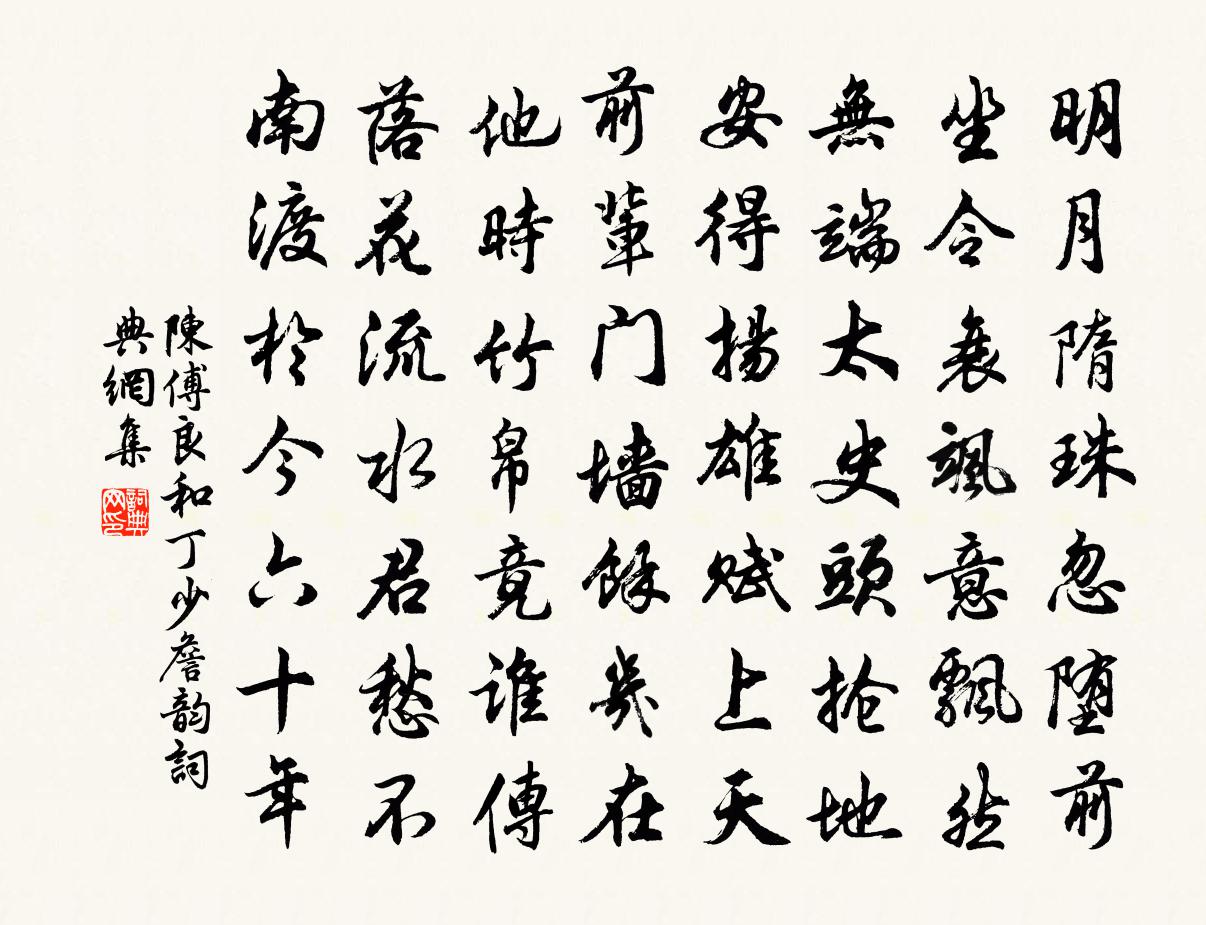 明月隋珠忽墮前
坐令衰颯意飄然
無端太史頭搶地
安得揚雄賦上天
前輩門墻餘幾在
他時竹帛竟誰傳
落花流水君愁不
南渡於今六十年
陳傅良和丁少詹韵詞
典網集
詞典网印